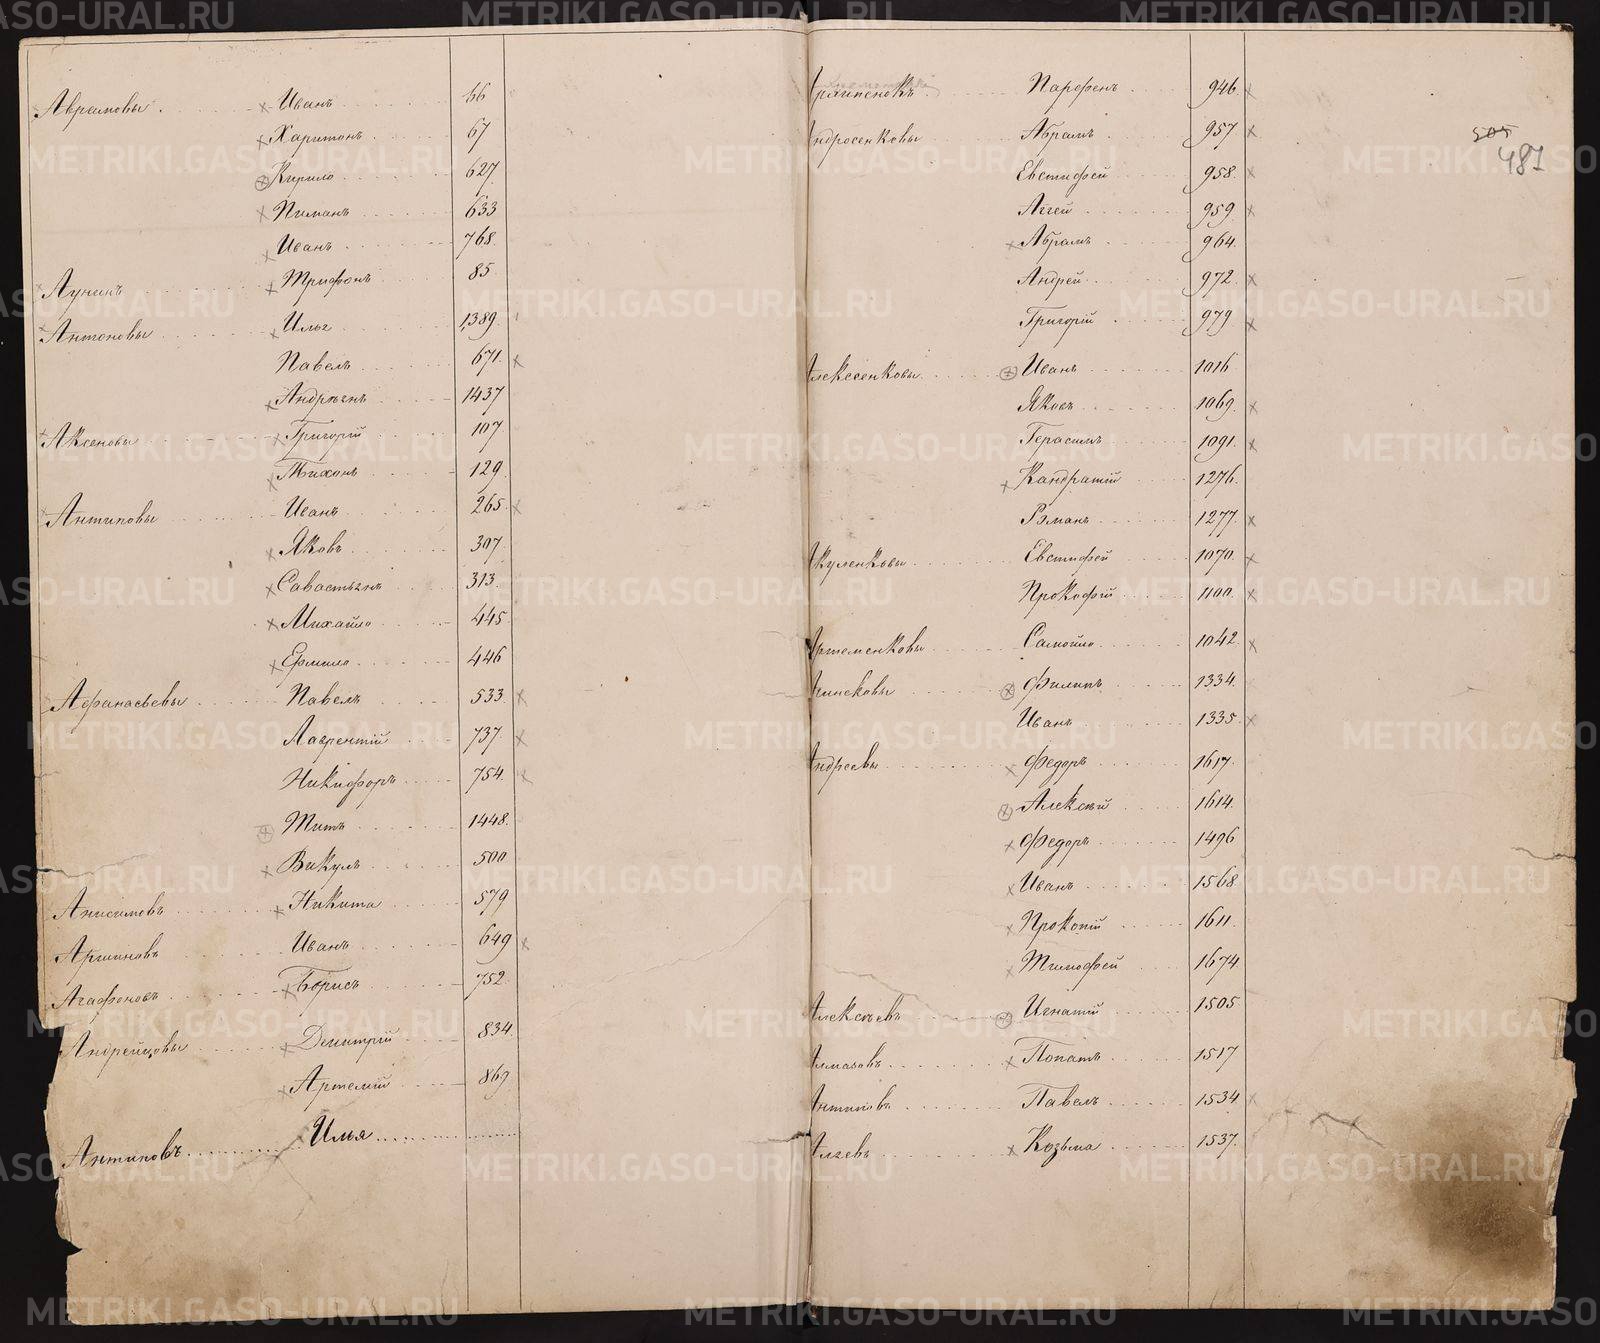 Аврамовы Иванъ 66
Харитонъ 67
Кирило 627
Пиманъ 633
Иванъ 768
Трифонъ 85
Антоновы Илья 1389
Павелъ 671
Андреянъ 1437
Аксеновы Григорій 107
Тихонъ 129
Антиповы Иванъ 265
Яковъ 307
Савастьянъ 313
Михайло 445
Ермило 446
Афанасьевы Павелъ 533
Лаврентій 737
Никифоръ 754
Титъ 1448
Викулъ 500
Анисимовъ Никита 579
Аршиновъ Иванъ 649
Агафоновъ Борисъ 752
Андрейцовы Дмитрій 834
Артемій 869
Антиповъ Илья
Парфенъ 946
Андросенковы Абрамъ 957
Евстифей 958
Аггей 959
Абрамъ 964
Андрей 972
Григорій 979
Алексенковы Иванъ 1016
Яковъ 1069
Герасимъ 1091
Кандратій 1276
Романъ 1277
Акуленковы Евстифей 1070
Прокофій 1100
Артеменковы Самойло 1042
Филипъ 1334
Иванъ 1335
Андреевы Федоръ 1617
Алексѣй 1614
Федоръ 1496
Иванъ 1568
Прокопій 1611
Тимофей 1674
Алексѣевъ Игнатій 1505
Алмазовъ Потапъ 1517
Антиповъ Павелъ 1534
Козьма 1537
505
487
METRIKI.GASO-URAL.RU